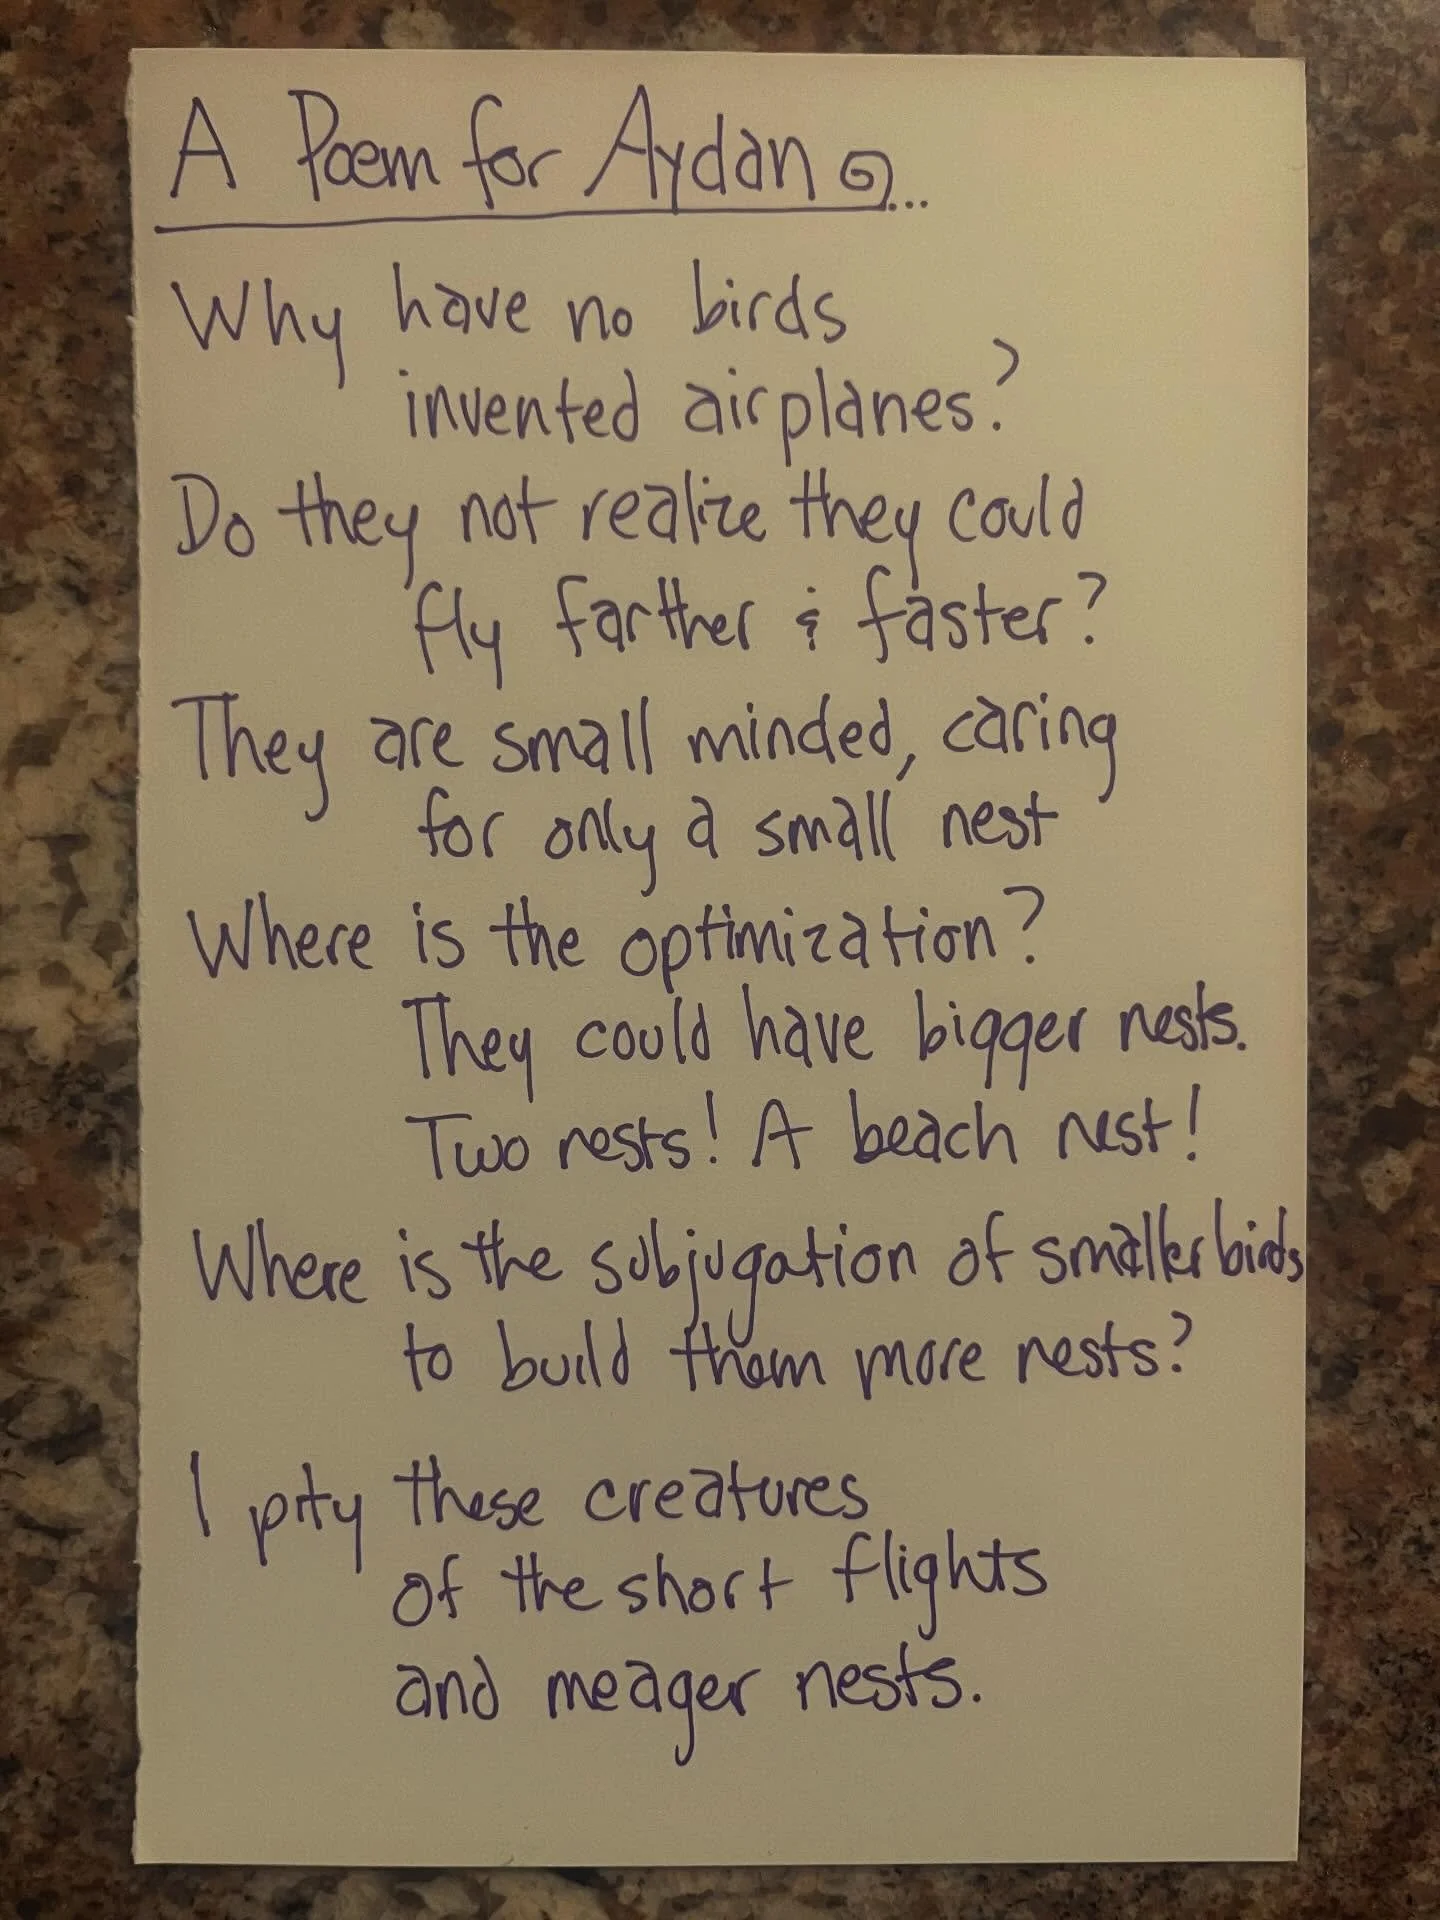 A Poem for Aydan ...
Why have no birds
invented airplanes?
Do they not realize they could
fly farther & faster?
They are small minded, caring
for only a small nest
Where is the optimization?
They could have bigger nests.
Two nests! A beach nest!
Where is the subjugation of smaller birds
to build them more nests?
I pity these creatures
of the short flights
and meager nests.